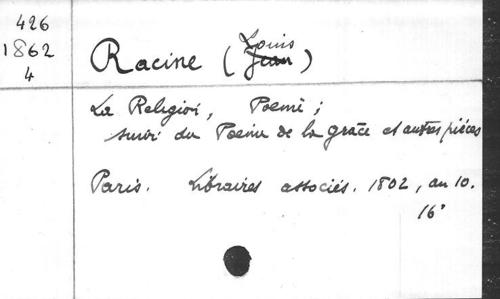 426
1862
4
Louis
Racine (Jean)
La Religion, Poème ;
suivi du Poème de la grâce et autres pièces
Paris. Libraires associés. 1802, an 10.
16°